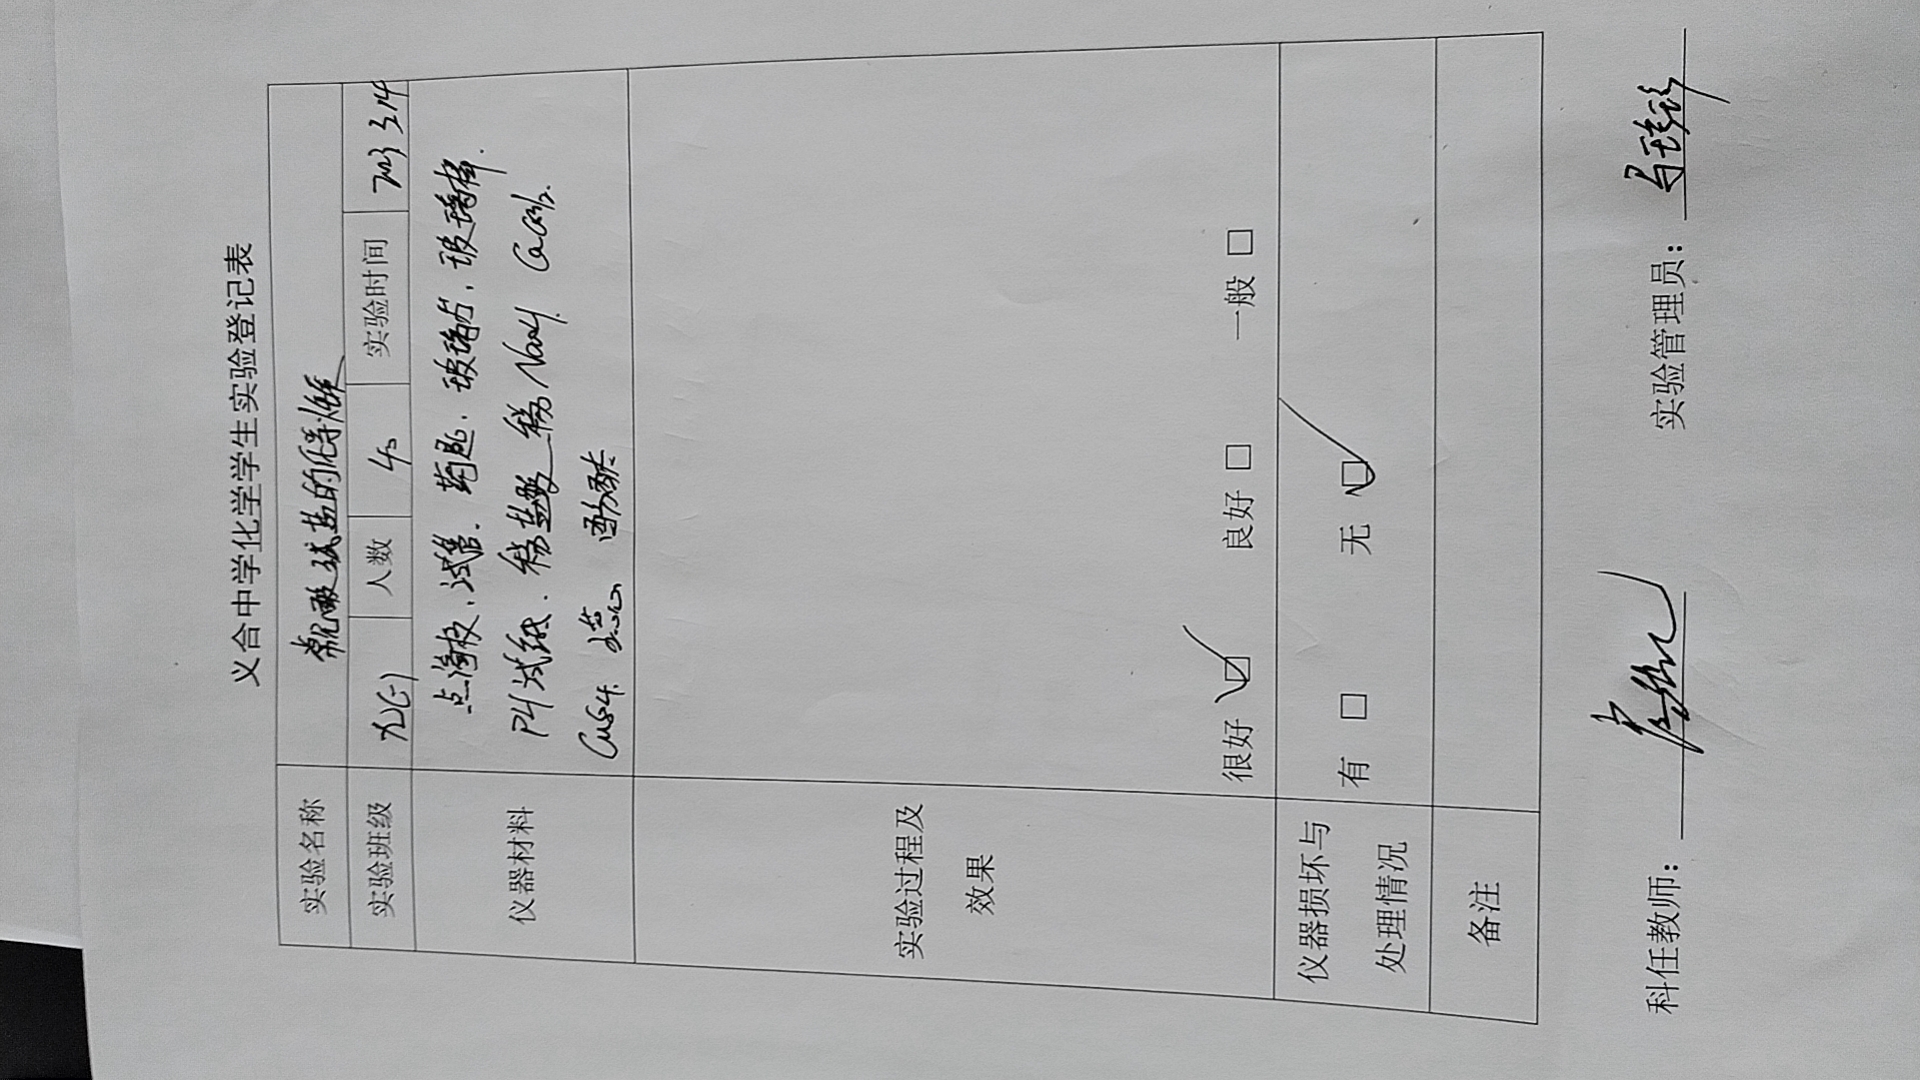 义合中学化学学生实验登记表
实验名称 常见酸碱盐的化学性质
实验班级 九(二) 人数 40 实验时间 2023 3.14
仪器材料 点滴板、试管、药匙、玻璃片、玻璃棒.
PH试纸. 稀盐酸 稀NaOH. Ca(OH)2.
CuSO4. 酚酞
实验过程及
效果
很好 ☑ 良好 □ 一般 □
仪器损坏与
处理情况
有 □ 无 ☑
备注
科任教师: 实验管理员: